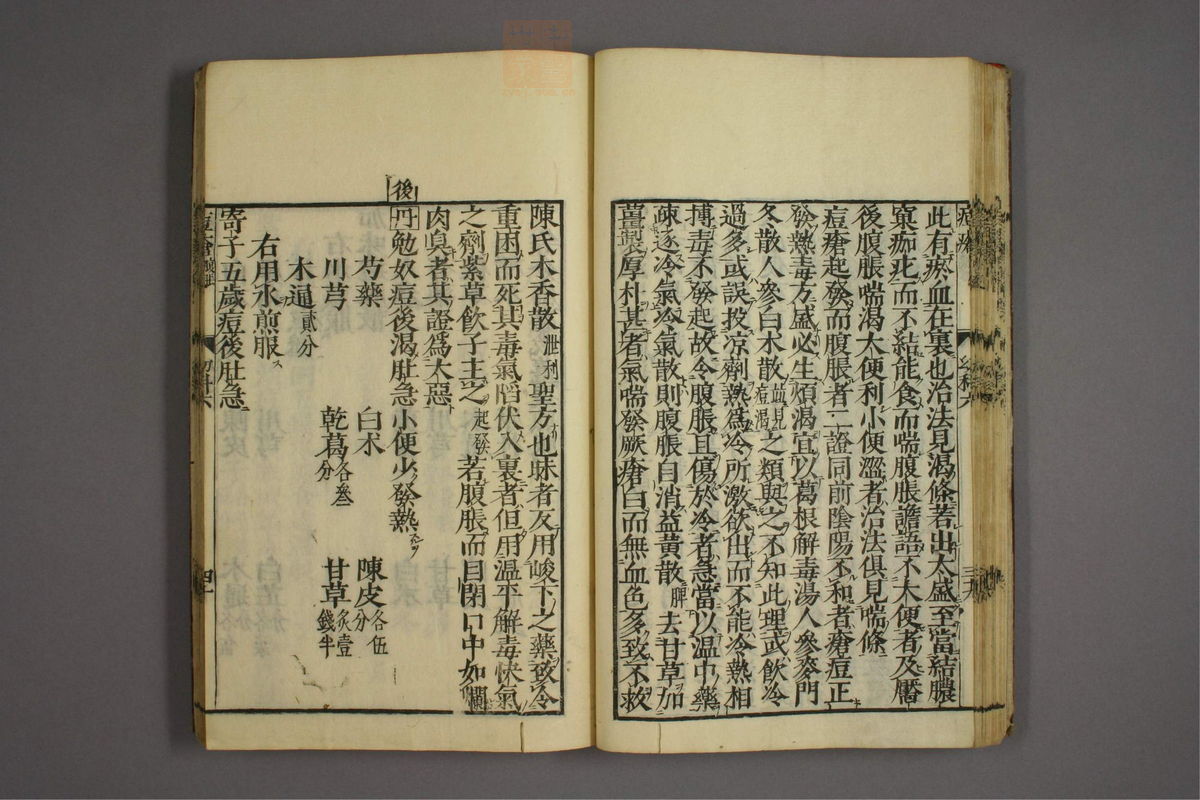 此有瘀血在裏也治法見渴條若出太盛至當結膿
窠痂疕而不結能食而喘腹脹譫語不大便者及靨
後腹脹喘渴大便利小便澀者治法俱見喘條
痘瘡起發而腹脹者二證同前陰陽不和者瘡痘正
發熱毒方盛必生煩渴宜以葛根解毒湯人參麥門
冬散人參白朮散並見痘渴之類與之不知此理或飲冷
過多或誤投凉劑熱爲冷所激欲出而不能冷熱相
搏毒不發起故令腹脹且傷於冷者急當以温中藥
疎逐冷氣冷氣散則腹脹自消益黃散脾去甘草加
薑製厚朴甚者氣喘發厥瘡白而無血色多致不救
陳氏木香散泄利聖方也昧者反用峻下之藥致冷
重困而死其毒氣慆伏入裏者但用溫平解毒快氣
之劑紫草飲子主之起發若腹脹而目閉口中如爛
肉臭者其證爲大惡
後
丹勉奴痘後渴肚急小便少發熱
芍藥 白朮 陳皮各伍分
川芎 乾葛各叁分 甘草炙壹錢半
木通貳分
右用水煎服
寄子五歲痘後肚急
四十